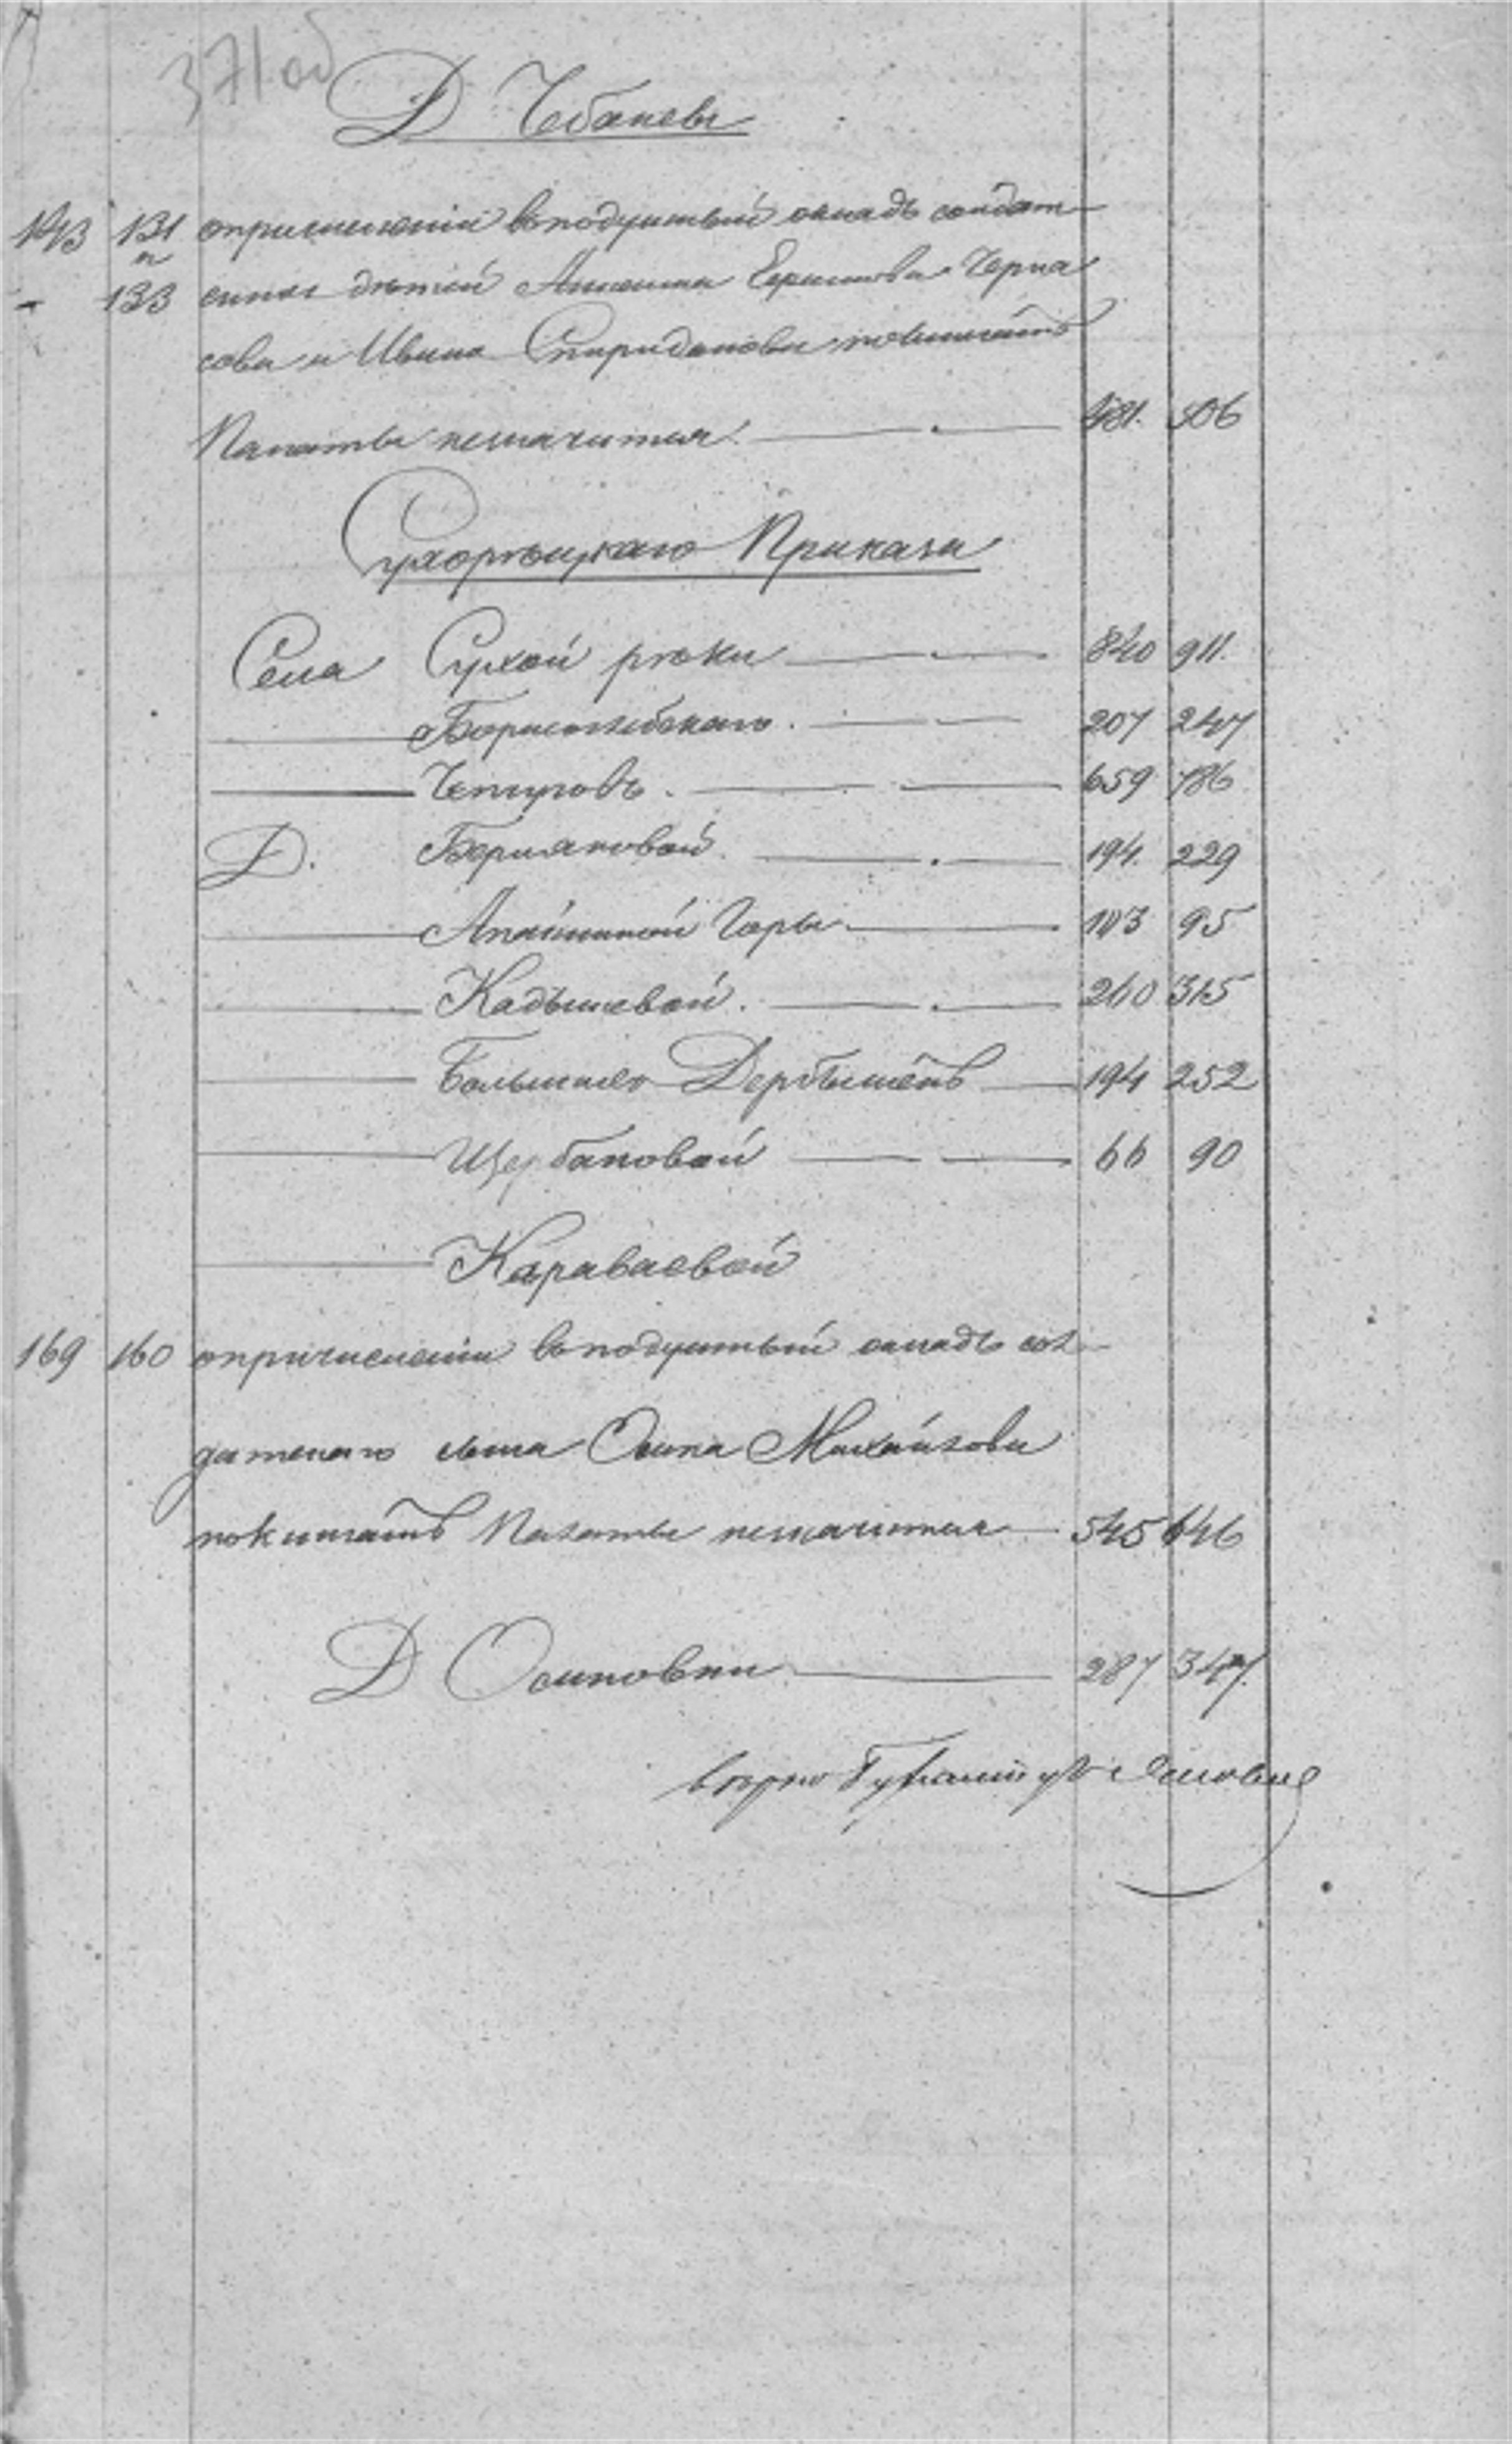 371об
Д Чебаневы
143 131 опричислении въ подушный окладъ солдат
и
- 133 скихъ дѣтей Алексѣя Ефимова Черка
сова и Ивана Спиридонова поклишатъ
Палаты незначится. 481. 506
Сухорѣцкаго Приказа
Села Сухой рѣки 840 911.
Борисоглебскаго. 207 247
Чепчуговъ. 659 786
Д. Берняковой. 194. 229
Апайкиной Горы 103 95
Кадышевой. 260 315
Большихъ Дербышекъ 194 252
Щербаковой 66 90
Караваевой
169 160 опричислении въ подушный окладъ сол
датскаго сына Осипа Михайлова
Палаты незначится 545 646
Д Осиновки 287 347.